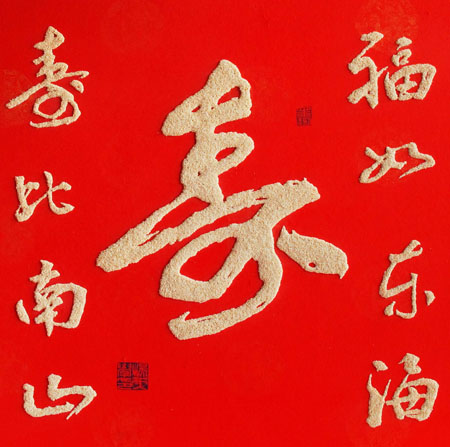 福如东海
寿
寿比南山